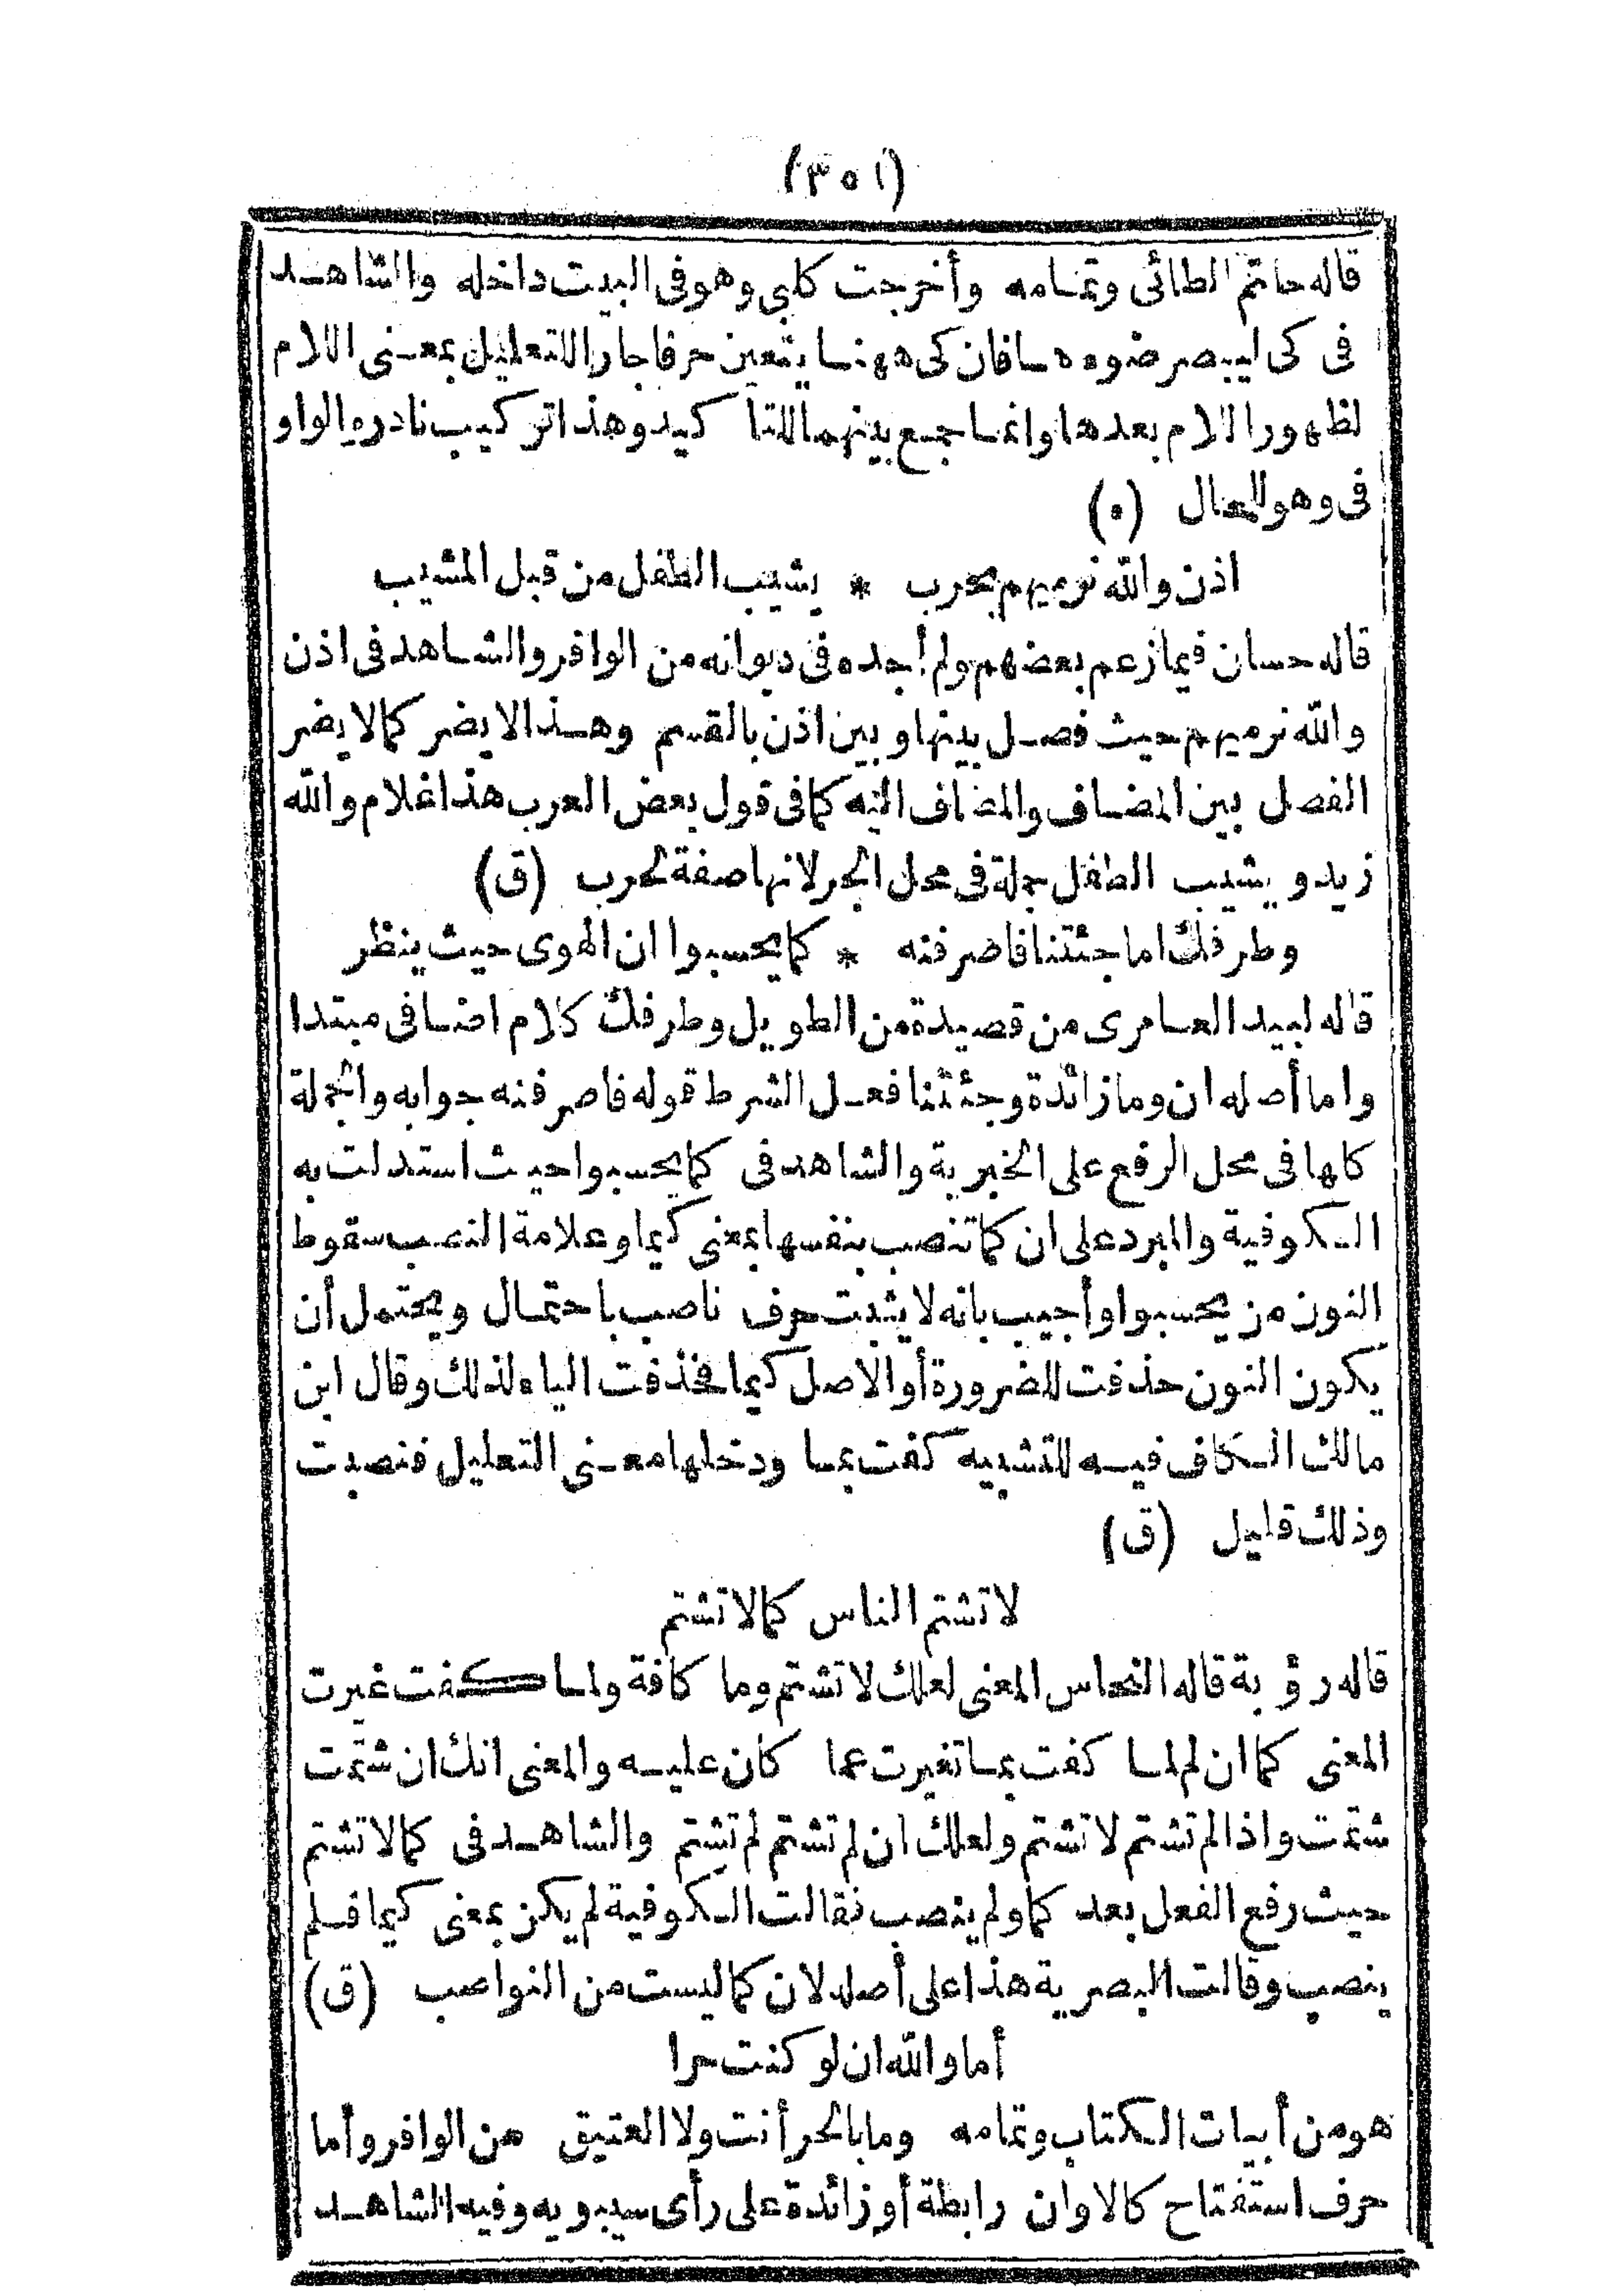 (٣٥١)
قاله حاتم الطائى وتمامه وأخرجت كلبى وهو فى البيت داخله والشاهد
فى كى ليبصر ضوءها فان كى ههنا يتعين حرفا جارا للتعليل بمعنى اللام
لظهور اللام بعدها وانما جمع بينهما للتأ كيد وهذا تركيب نادر والواو
فى وهو للحال (ه)
اذن والله نرميهم بحرب * يشيب الطفل من قبل المشيب
قاله حسان فيما زعم بعضهم ولم أجده فى ديوانه من الوافر والشاهد فى اذن
والله نرميهم حيث فصل بينها وبين اذن بالقسم وهذا لا يضر كما لا يضر
الفصل بين المضاف والمضاف اليه كما فى قول بعض العرب هذا غلام والله
زيد ويشيب الطفل جملة فى محل الجر لانها صفة لحرب (ق)
وطرفك اما جئتنا فاصرفنه * كما يحسبوا ان الهوى حيث ينظر
قاله لبيد العامرى من قصيدة من الطويل وطرفك كلام اضافى مبتدا
واما أصله ان وما زائدة وجئتنا فعل الشرط قوله فاصرفنه جوابه والجملة
كلها فى محل الرفع على الخبرية والشاهد فى كما يحسبوا حيث استدلت به
الكوفية والمبرد على ان كما تنصب بنفسها بمعنى كيما وعلامة النصب سقوط
النون من يحسبوا وأجيب بانه لا يثبت حرف ناصب باحتمال ويحتمل أن
يكون النون حذفت للضرورة أو الاصل كيما فحذفت الياء لذلك وقال ابن
مالك الكاف فيه للتشبيه كفت بما ودخلها معنى التعليل فنصبت
وذلك قليل (ق)
لا تشتم الناس كما لا تشتم
قاله رؤبة قاله النحاس المعنى لعلك لا تشتم وما كافة ولما كفت غيرت
المعنى كما ان لم لما كفت بما تغيرت عما كان عليه والمعنى انك ان شتمت
شتمت واذا لم تشتم لا تشتم ولعلك ان لم تشتم لم تشتم والشاهد فى كما لا تشتم
حيث رفع الفعل بعد كما ولم ينصب فقالت الكوفية لم يكن بمعنى كيما فلم
ينصب وقالت البصرية هذا على أصله لان كما ليست من النواصب (ق)
أما والله ان لو كنت حرا
هو من أبيات الكتاب وتمامه وما بالحر أنت ولا العتيق من الوافر وأما
حرف استفتاح كالا وان رابطة أو زائدة على رأى سيبويه وفيه الشاهد